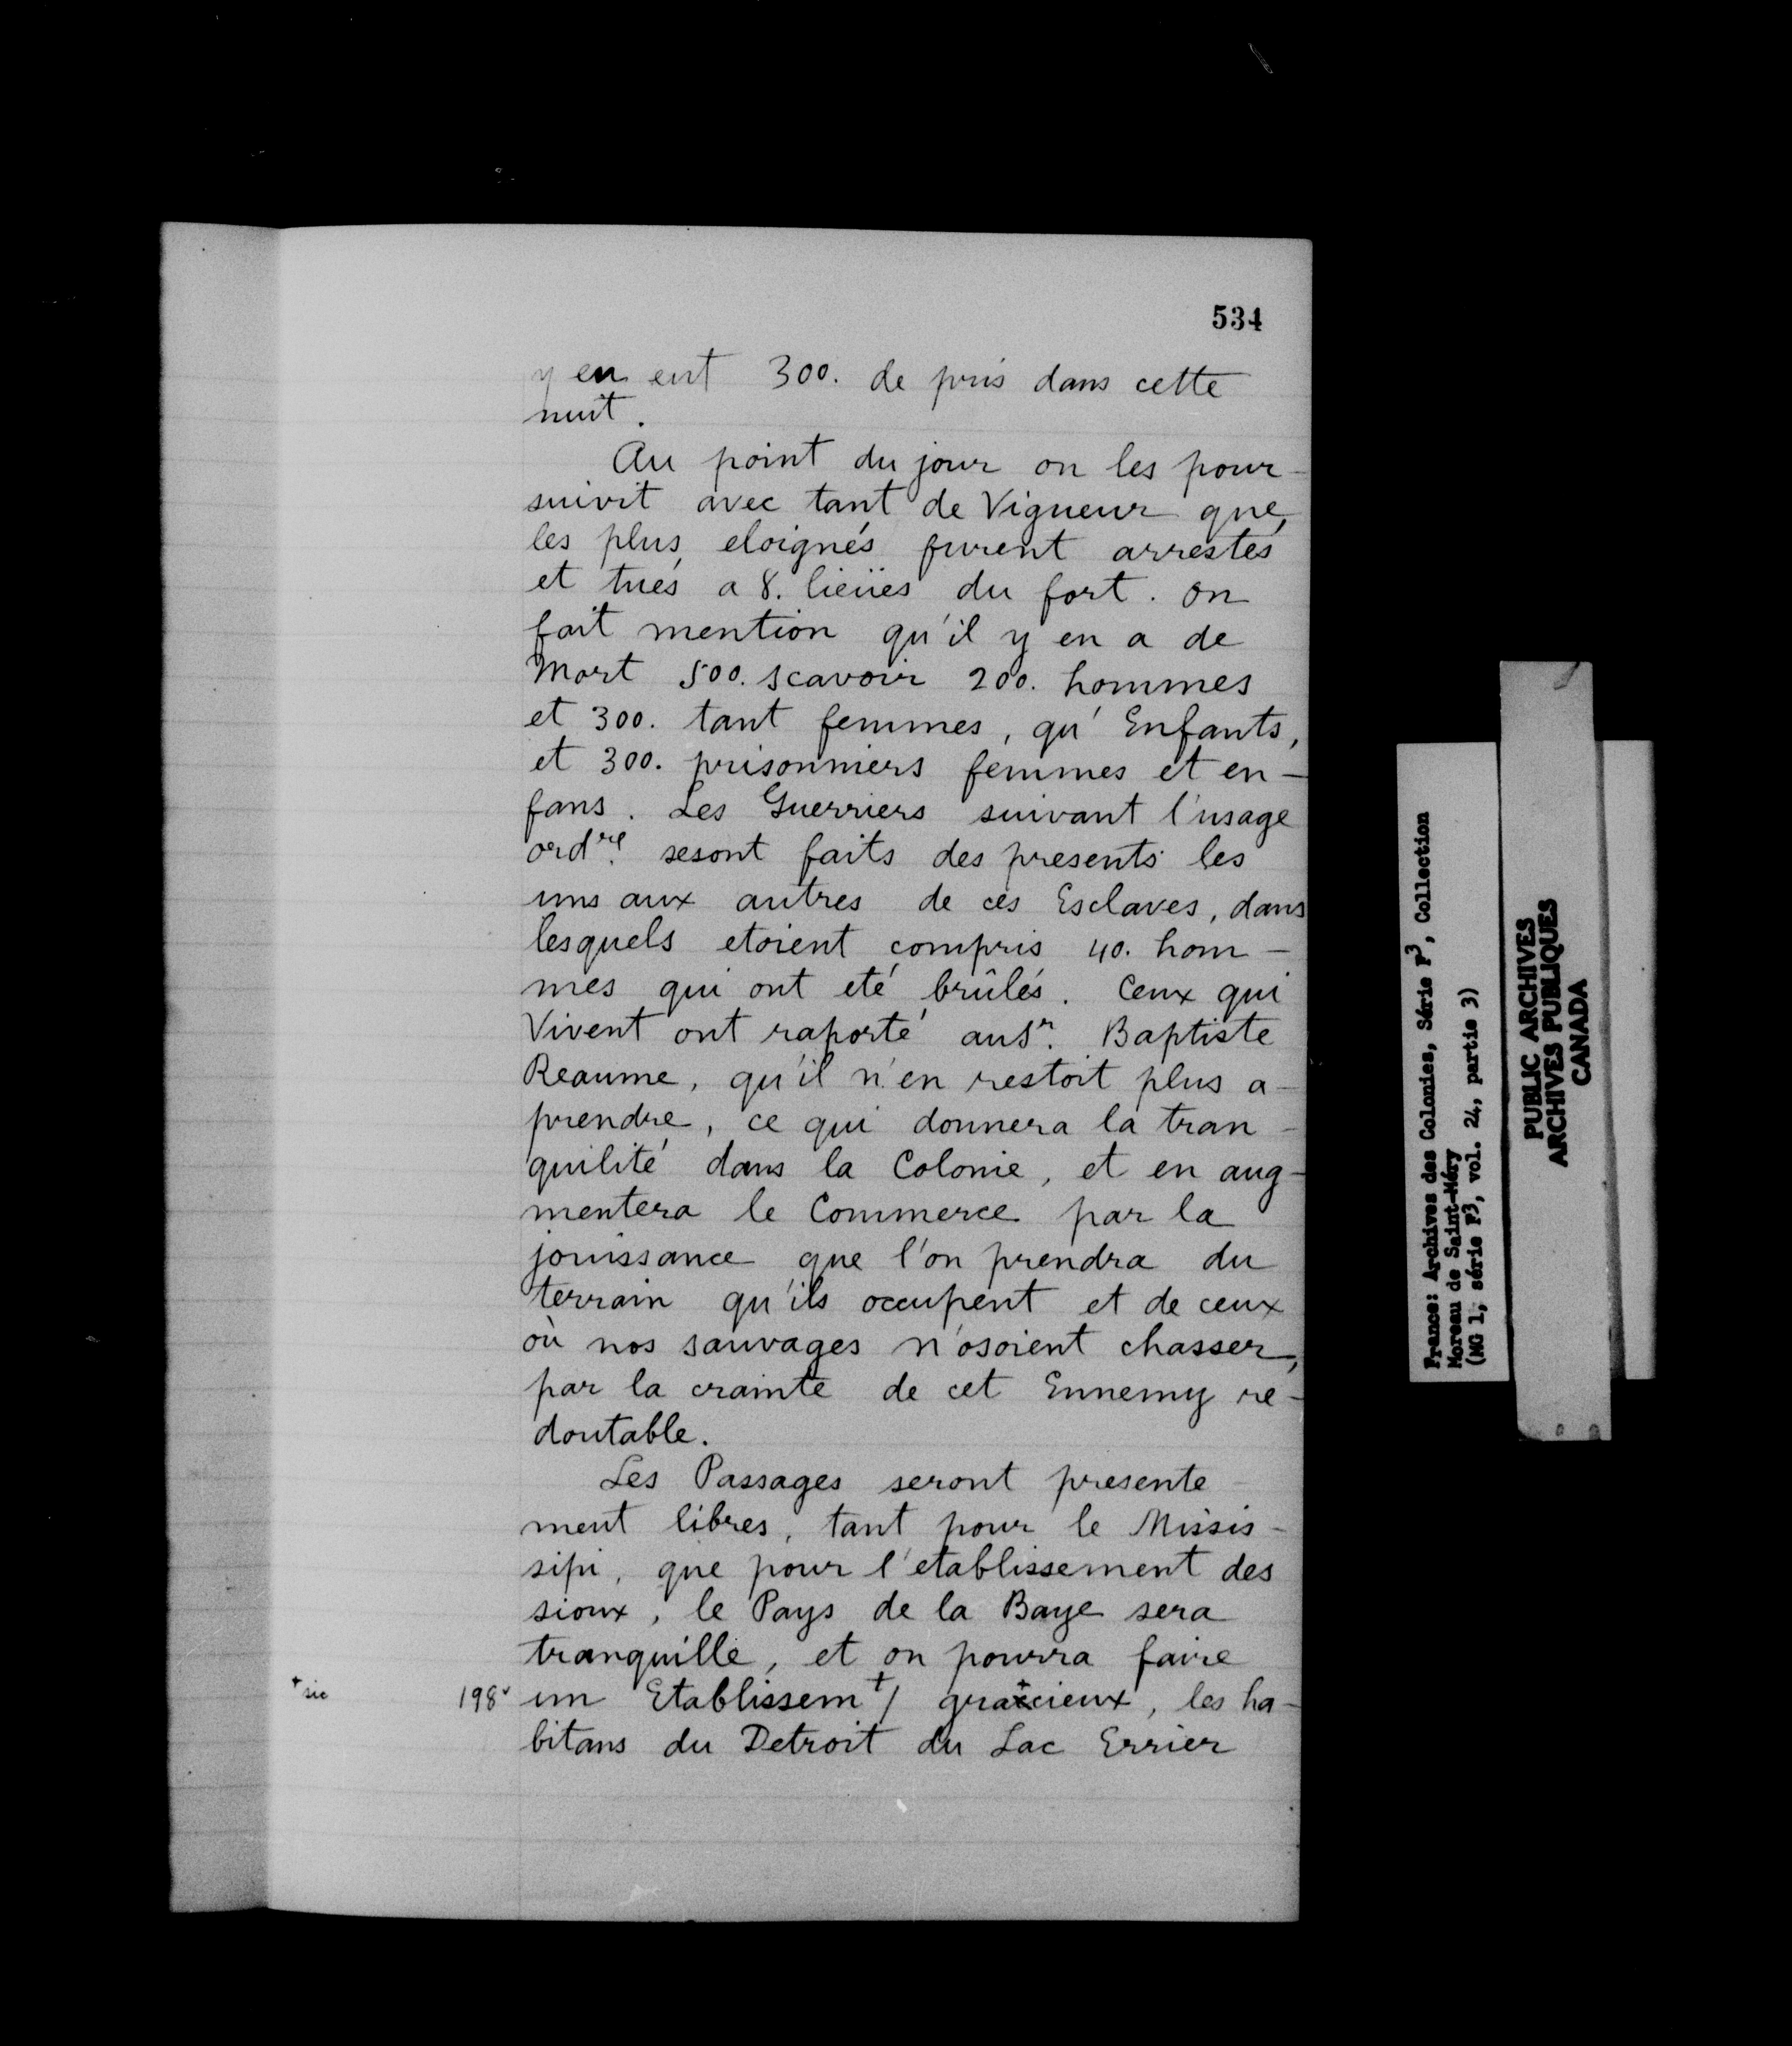 534
y en eut 300. de pris dans cette
nuit.
Au point du jour on les pour-
suivit avec tant de Vigueur que,
les plus eloignés furent arrestés
et tués a 8. lieües du fort. On
fait mention qu'il y en a de
Mort 500. scavoir 200. hommes
et 300. tant femmes, qu'Enfants,
et 300. prisonniers femmes et en-
fans. Les Guerriers suivant l'usage
ordre. sesont faits des presents les
uns aux autres de ces Esclaves, dans
lesquels etoient compris 40. hom-
mes qui ont eté brûlés. Ceux qui
Vivent ont raporté au Sr. Baptiste
Reaume, qu'il n'en restoit plus a-
prendre, ce qui donnera la tran-
quilité dans la Colonie, et en aug-
mentera le Commerce par la
jouissance que l'on prendra du
terrain qu'ils occupent et de ceux
où nos sauvages n'osoient chasser,
par la crainte de cet Ennemy re-
doutable.
Les Passages seront presente-
ment libres, tant pour le Missis-
sipi, que pour l'etablissement des
sioux, le Pays de la Baye sera
tranquille, et on pourra faire
+ sic 198v un Etablissemt / gra+cieux, les ha-
bitans du Detroit du Lac Errier
France: Archives des Colonies, Série F3, Collection
Moreau de Saint-Méry
(MG 1, série F3, vol. 24, partie 3)
PUBLIC ARCHIVES
ARCHIVES PUBLIQUES
CANADA